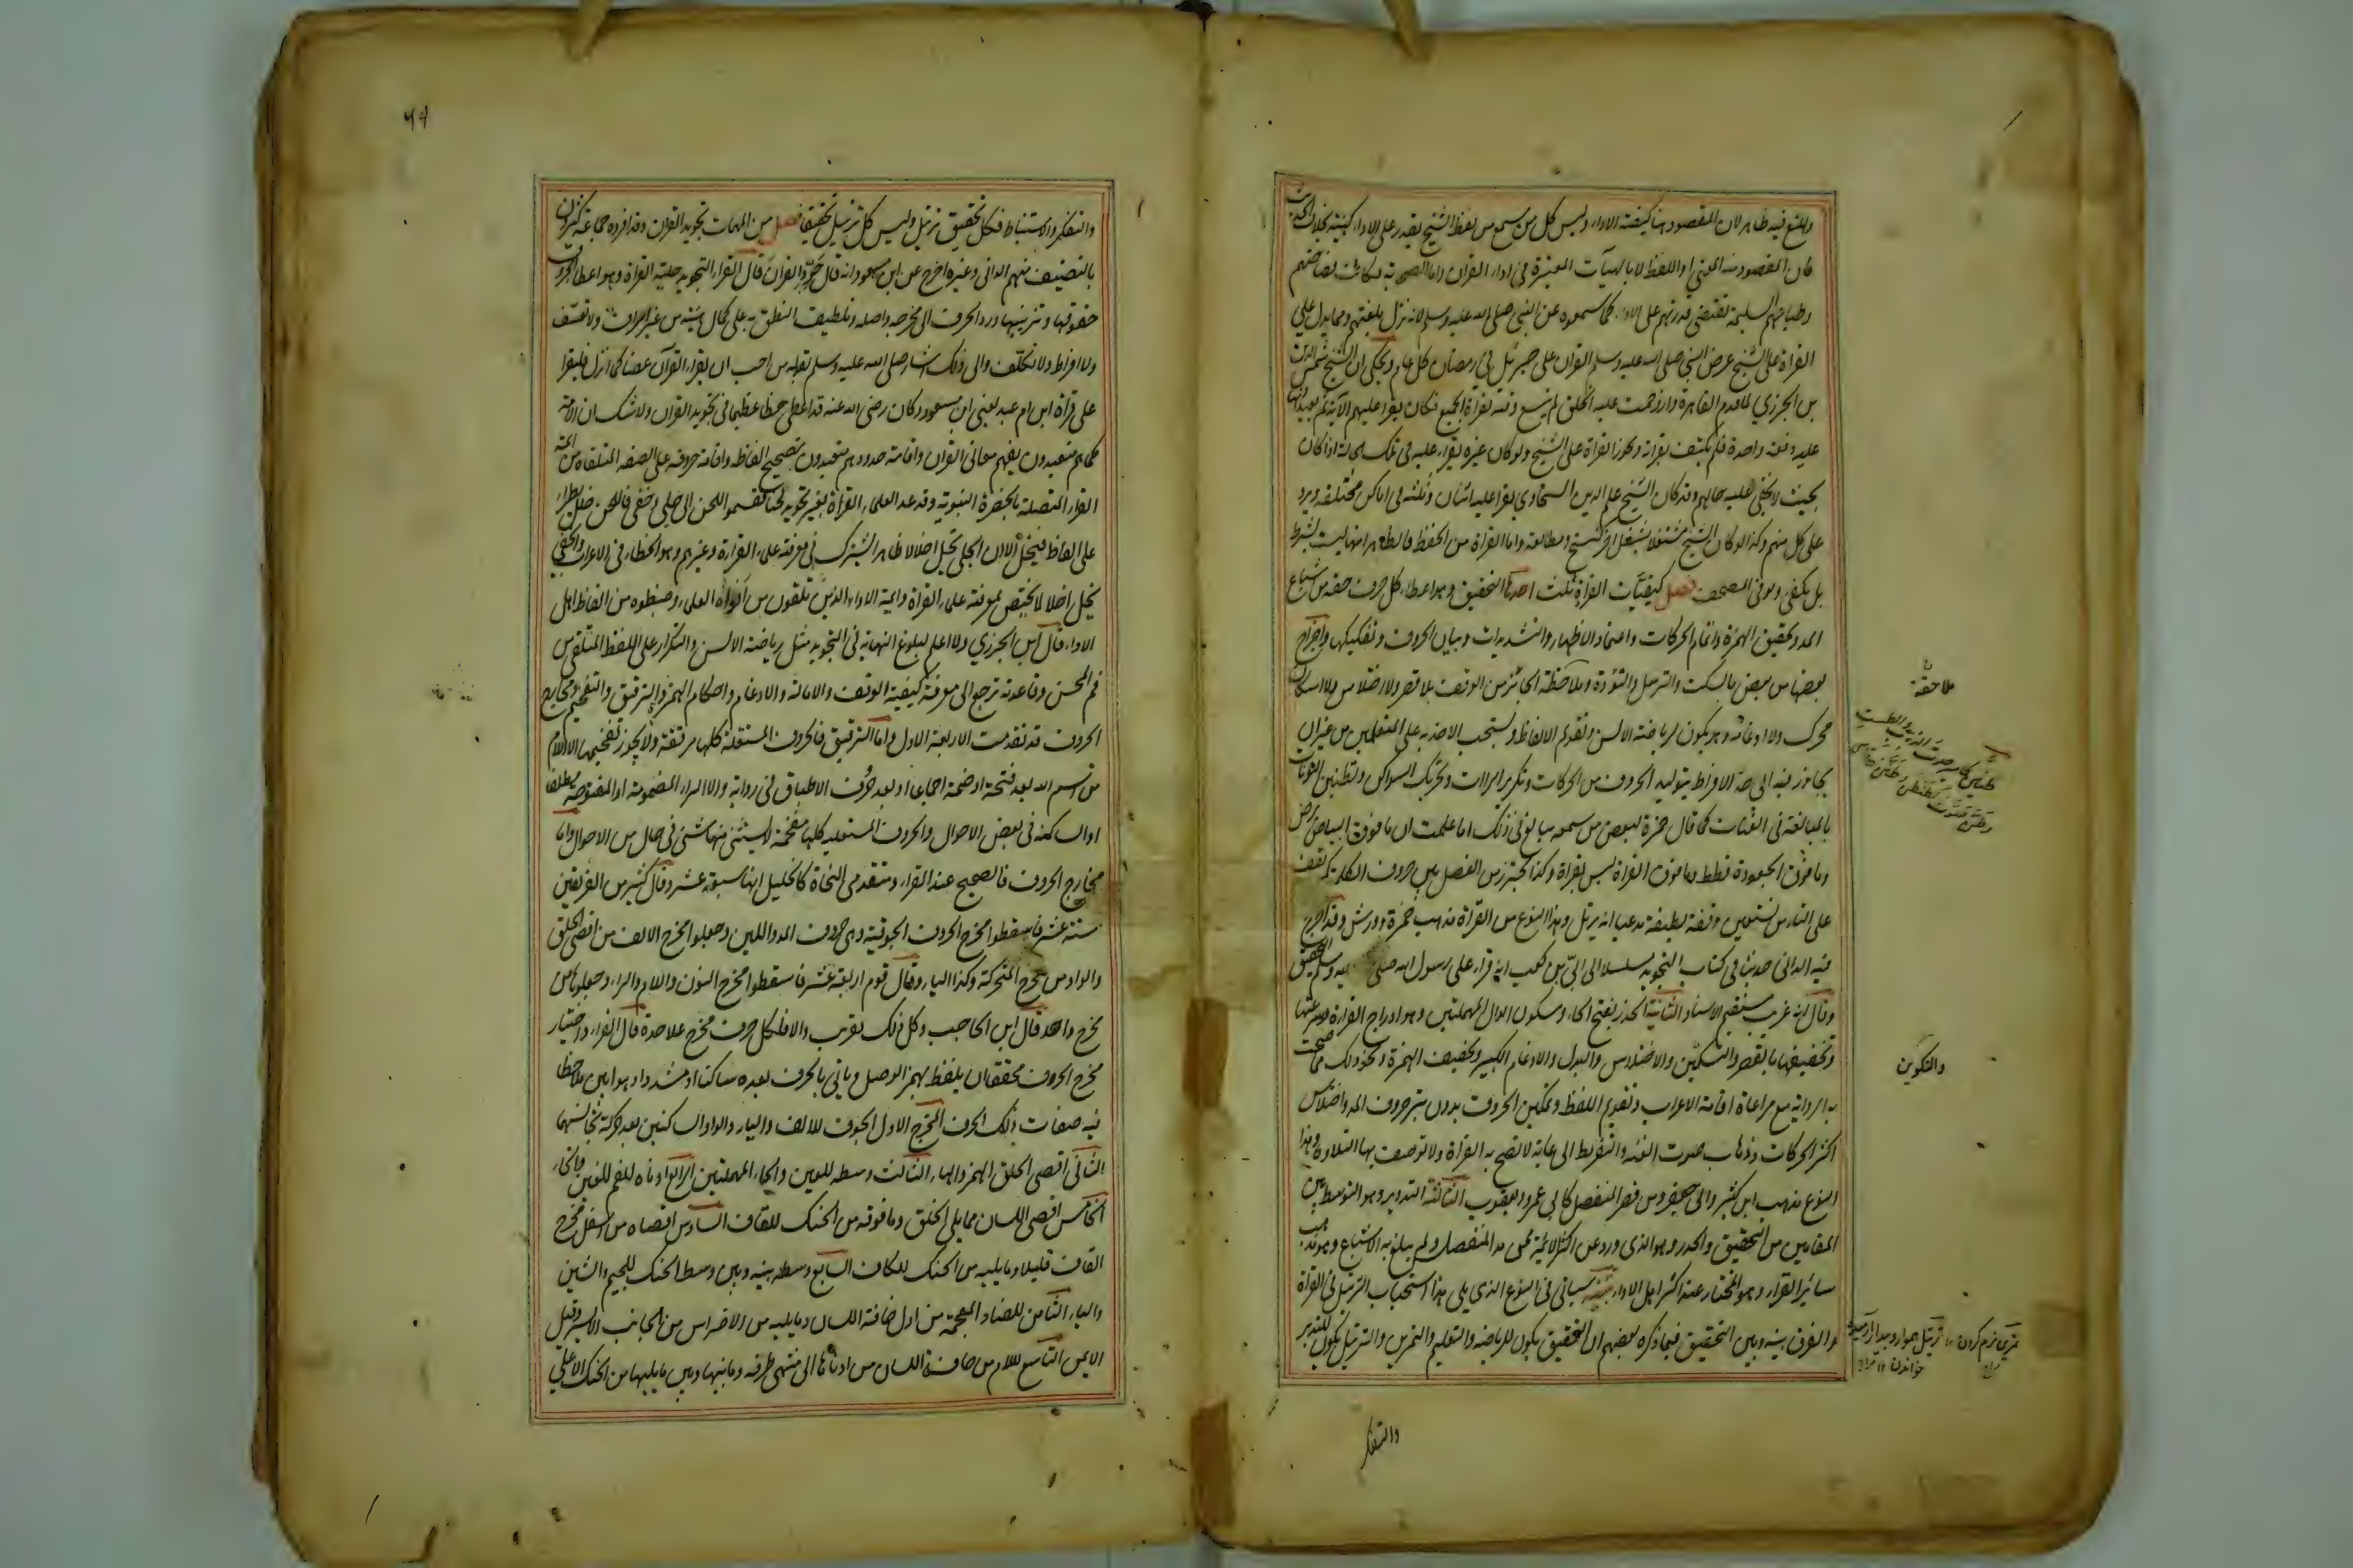 والمنع فيه ظاهر لان المقصود هنا كيفية الاداء وليس كل من سمع من لفظ الشيخ يقدر على الاداء كهيئته بخلاف الحديث
فان المقصود منه المعنى او اللفظ لا بالهيآت المعتبرة فى اداء القران واما الصحابة فكانت فصاحتهم
وطباعهم السليمة تقتضى قدرتهم على الاداء كما سمعوه من النبى صلى الله عليه وسلم لانه نزل بلغتهم ومما يدل على
القراة على الشيخ عرض النبى صلى الله عليه وسلم القران على جبرئيل فى رمضان كل عام ويحكى ان الشيخ شمس الدين
بن الجزري لما قدم القاهرة وازدحمت عليه الخلق لم يتسع وقته لقراة الجميع فكان يقرأ عليهم الآية ثم يعيدونها
عليه دفعة واحدة فلم يكتف بقراته وتجوز القراة على الشيخ ولو كان غيره يقراء عليه فى تلك الحالة اذا كان
بحيث لا يخفى عليه حالهم وقد كان الشيخ علم الدين السخاوى يقرا عليه اثنان وثلثة فى اماكن مختلفة ويرد
على كل منهم وكذا لو كان الشيخ مشتغلا بشغل اخر كنسخ ومطالعة واما القراة من الحفظ فالظاهر انها ليست بشرط
بل يكفى ولو فى المصحف فصل كيفيات القراة ثلث احدها التحقيق وهو اعطاء كل حرف حقه من اشباع
المد وتحقيق الهمزة واتمام الحركات واعتماد الاظهار والتشديدات وبيان الحروف وتفكيكها واخراج
بعضها من بعض بالسكت والترسل والتؤدة وملاحظة الجائز من الوقف بلا قصر ولا اختلاس ولا اسكان
محرك ولا ادغامه وهو يكون لرياضة الالسن وتقويم الالفاظ ويستحب الاخذ به على المتعلمين من غير ان
يجاوز فيه الى حد الافراط بتوليد الحروف من الحركات وتكرير الراات وتحريك السواكن وتطنين النونات
بالمبالغة فى الغنات كما قال حمزة لبعض من سمعه يبالغ فى ذلك اما علمت ان ما فوق البياض برص
وما فوق الجعودة قطط وما فوق القراة ليس بقراة وكذا يحترز من الفصل بين حروف الكلمة كمن يقف
على التا من نستعين وقفة لطيفة مدعيا انه يرتل وهذا النوع من القراة مذهب حمزة وورش وقد اخرج
فيه الدانى حديثا فى كتاب التجويد مسلسلا الى ابىّ بن كعب انه قراء على رسول الله صلى عليه وسلم التحقيق
وقال انه غريب مستقيم الاسناد الثانية الحدر بفتح الحاء وسكون الدال المهملتين وهو ادراج القراءة وسرعتها
وتخفيفها بالقصر والتسكين والاختلاس والبدل والادغام الكبير وتخفيف الهمزة ونحو ذلك مما صحت
به الرواية مع مراعاة اقامة الاعراب وتقويم اللفظ وتمكين الحروف بدون بتر حروف المد واختلاس
اكثر الحركات وذهاب صوت الغنة والتفريط الى غاية لا تصح به القراة ولا توصف بها التلاوة وهذا
النوع مذهب ابن كثير وابى جعفر ومن قصر المنفصل كابى عمرو ويعقوب الثالثة التدوير وهو التوسط بين
المقامين من التحقيق والحدر وهو الذى ورد عن اكثر الائمة ممن مد المنفصل ولم يبلغ به الاشباع وهو مذهب
سائر القراء وهو المختار عند اكثر اهل الاداء تنبيه سياتى فى النوع الذى يلى هذا استحباب الترتيل فى القراة
والفرق بينه وبين التحقيق فيما ذكره بعضهم ان التحقيق يكون للرياضة والتعليم والتمرين والترتيل يكون للتدبر
والتفكر
ملاحقة
والتكوين
تمرين نرم كردن
خواندن
٦٩
والتفكر والاستنباط فكل تحقيق ترتيل وليس كل ترتيل تحقيقا فصل من المهمات تجويد القران وقد افرده جماعة كثيرون
بالتصنيف منهم الدانى وغيره اخرج عن ابن مسعود انه قال جوّدوا القران قال القراء التجويد حلية القراة وهو اعطاء الحروف
حقوقها وترتيبها ورد الحرف الى مخرجه واصله وتلطيف النطق به على كمال هيئته من غير اسراف ولا تعسّف
ولا افراط ولا تكلّف والى ذلك اشار صلى الله عليه وسلم بقوله من احب ان يقراء القرآن غضا كما انزل فليقرا
على قراة ابن ام عبد يعنى ابن مسعود وكان رضى الله عنه قد اعطى حظا عظيما فى تجويد القران ولا شك ان الامة
كما هم متعبدون بفهم معانى القران واقامة حدوده هم متعبدون بتصحيح الفاظه واقامة حروفه على الصفة المتلقاة من ائمة
القراء المتصلة بالحضرة النبوية وقد عد العلماء القراة بغير تجويد لحنا فقسموا اللحن الى جلى وخفى فاللحن خلل يطراء
على الفاظ فيخل الا ان الجلى يخل اخلالا ظاهرا يشترك فى معرفته علماء القراءة وغيرهم وهو الخطاء فى الاعراب والخفى
يخل اخلالا يختص بمعرفته علماء القراة وايمة الاداء الذين تلقوه من افواه العلماء وضبطوه من الفاظ اهل
الاداء قال ابن الجزري ولا اعلم لبلوغ النهاية فى التجويد مثل رياضة الالسن والتكرار على اللفظ المتلقى من
فم المحسن وقاعدته ترجع الى معرفة كيفية الوقف والامالة والادغام واحكام الهمز والترقيق والتفخيم ومخارج
الحروف قد تقدمت الاربعة الاول واما الترقيق فالحروف المستفلة كلها مرققة ولا يجوز تفخيمها الا اللام
من اسم الله بعد فتحة او ضمة اجماعا او بعد حروف الاطباق فى رواية والا الراء المضمومة او المفتوحة مطلقا
او الساكنة فى بعض الاحوال والحروف المستعلية كلها مفخمة لا يستثنى منها شئ فى حال من الاحوال واما
مخارج الحروف فالصحيح عند القراء ومتقدمى النحاة كالخليل انها سبعة عشر وقال كثير من الفريقين
ستة عشر فاسقطوا مخرج الحروف الجوفية وهى حروف المد واللين وجعلوا مخرج الالف من اقصى الحلق
والواو من مخرج المتحركة وكذا الياء وقال قوم اربعة عشر فاسقطوا مخرج النون واللام والراء وجعلوها من
مخرج واحد قال ابن الحاجب وكل ذلك تقريب والا فلكل حرف مخرج علاحدة قال القراء واختيار
مخرج الحروف محققا ان يلفظ بهمز الوصل وياتى بالحرف بعده ساكنا او مشددا وهو ابين ملاحظا
فيه صفات ذلك الحرف المخرج الاول الجوف للالف والياء والواو الساكنين بعد حركة تجانسهما
الثانى اقصى الحلق للهمز والهاء الثالث وسطه للعين والحاء المهملتين الرابع ادناه للفم للغين والخاء
الخامس اقصى اللسان مما يلى الحلق وما فوقه من الحنك للقاف السادس اقصاه من اسفل مخرج
القاف قليلا وما يليه من الحنك للكاف السابع وسطه بينه وبين وسط الحنك للجيم والشين
والياء الثامن للضاد المعجمة من اول حافة اللسان وما يليه من الاضراس من الجانب الايسر وقيل
الايمن التاسع للام من حافة اللسان من ادناها الى منتهى طرفه وما بينها وبين ما يليها من الحنك الاعلى